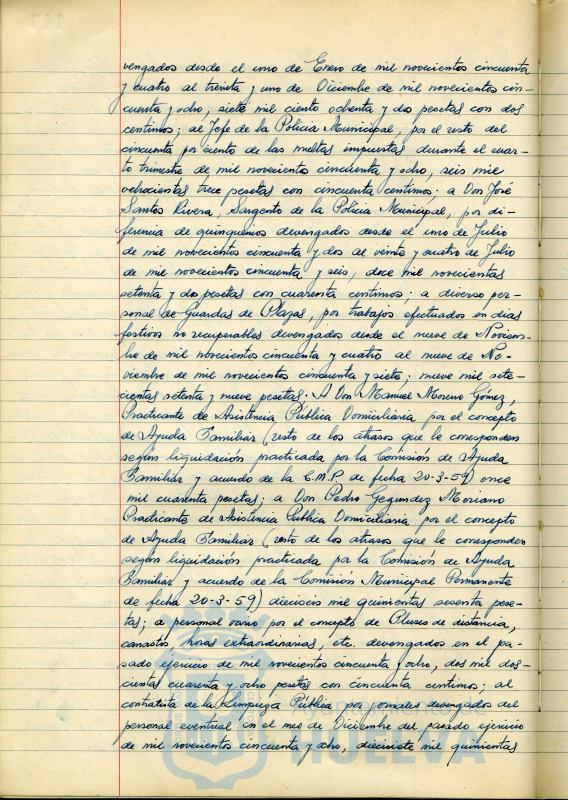 vengados desde el uno de Enero de mil novecientos cincuenta
y cuatro al treinta y uno de Diciembre de mil novecientos cin-
cuenta y ocho, siete mil ciento ochenta y dos pesetas con dos
centimos; al Jefe de la Policia Municipal, por el resto del
cincuenta por ciento de las multas impuestas durante el cuar-
to trimestre de mil novecientos cincuenta y ocho, seis mil
ochocientas trece pesetas con cincuenta centimos; a Don José
Santos Rivera, Sargento de la Policia Municipal, por di-
ferencia de quinquenios devengados desde el uno de Julio
de mil novecientos cincuenta y dos al veinte y cuatro de Julio
de mil novecientos cincuenta y seis, doce mil novecientas
setenta y dos pesetas con cuarenta centimos; a diverso per-
sonal de Guardas de Plazas, por trabajos efectuados en dias
festivos no recuperables devengados desde el nueve de Noviem-
bre de mil novecientos cincuenta y cuatro al nueve de No-
viembre de mil novecientos cincuenta y siete; nueve mil sete-
cientas setenta y nueve pesetas; A Don Manuel Moreno Gómez,
Practicante de Asistencia Pública Domiciliaria por el concepto
de Ayuda Familiar (resto de los atrasos que le corresponden
según liquidación practicada por la Comisión de Ayuda
Familiar y acuerdo de la C.M.P. de fecha 20-3-59) once
mil cuarenta pesetas; a Don Pedro Gegundez Moriano
Practicante de Asistencia Publica Domiciliaria por el concepto
de Ayuda Familiar (resto de los atrasos que le corresponden
según liquidación practicada por la Comisión de Ayuda
Familiar y acuerdo de la Comisión Municipal Permanente
de fecha 20-3-59) dieciseis mil quinientas sesenta pese-
tas; a personal vario por el concepto de Pluses de distancia,
canastos, horas extraordinarias, etc. devengados en el pa-
sado ejercicio de mil novecientos cincuenta y ocho, dos mil dos-
cientas cuarenta y ocho pesetas con cincuenta centimos; al
contratista de la Limpieza Pública por jornales devengados del
personal eventual en el mes de Diciembre del pasado ejercicio
de mil novecientos cincuenta y ocho, diecisiete mil quinientas
HUELVA